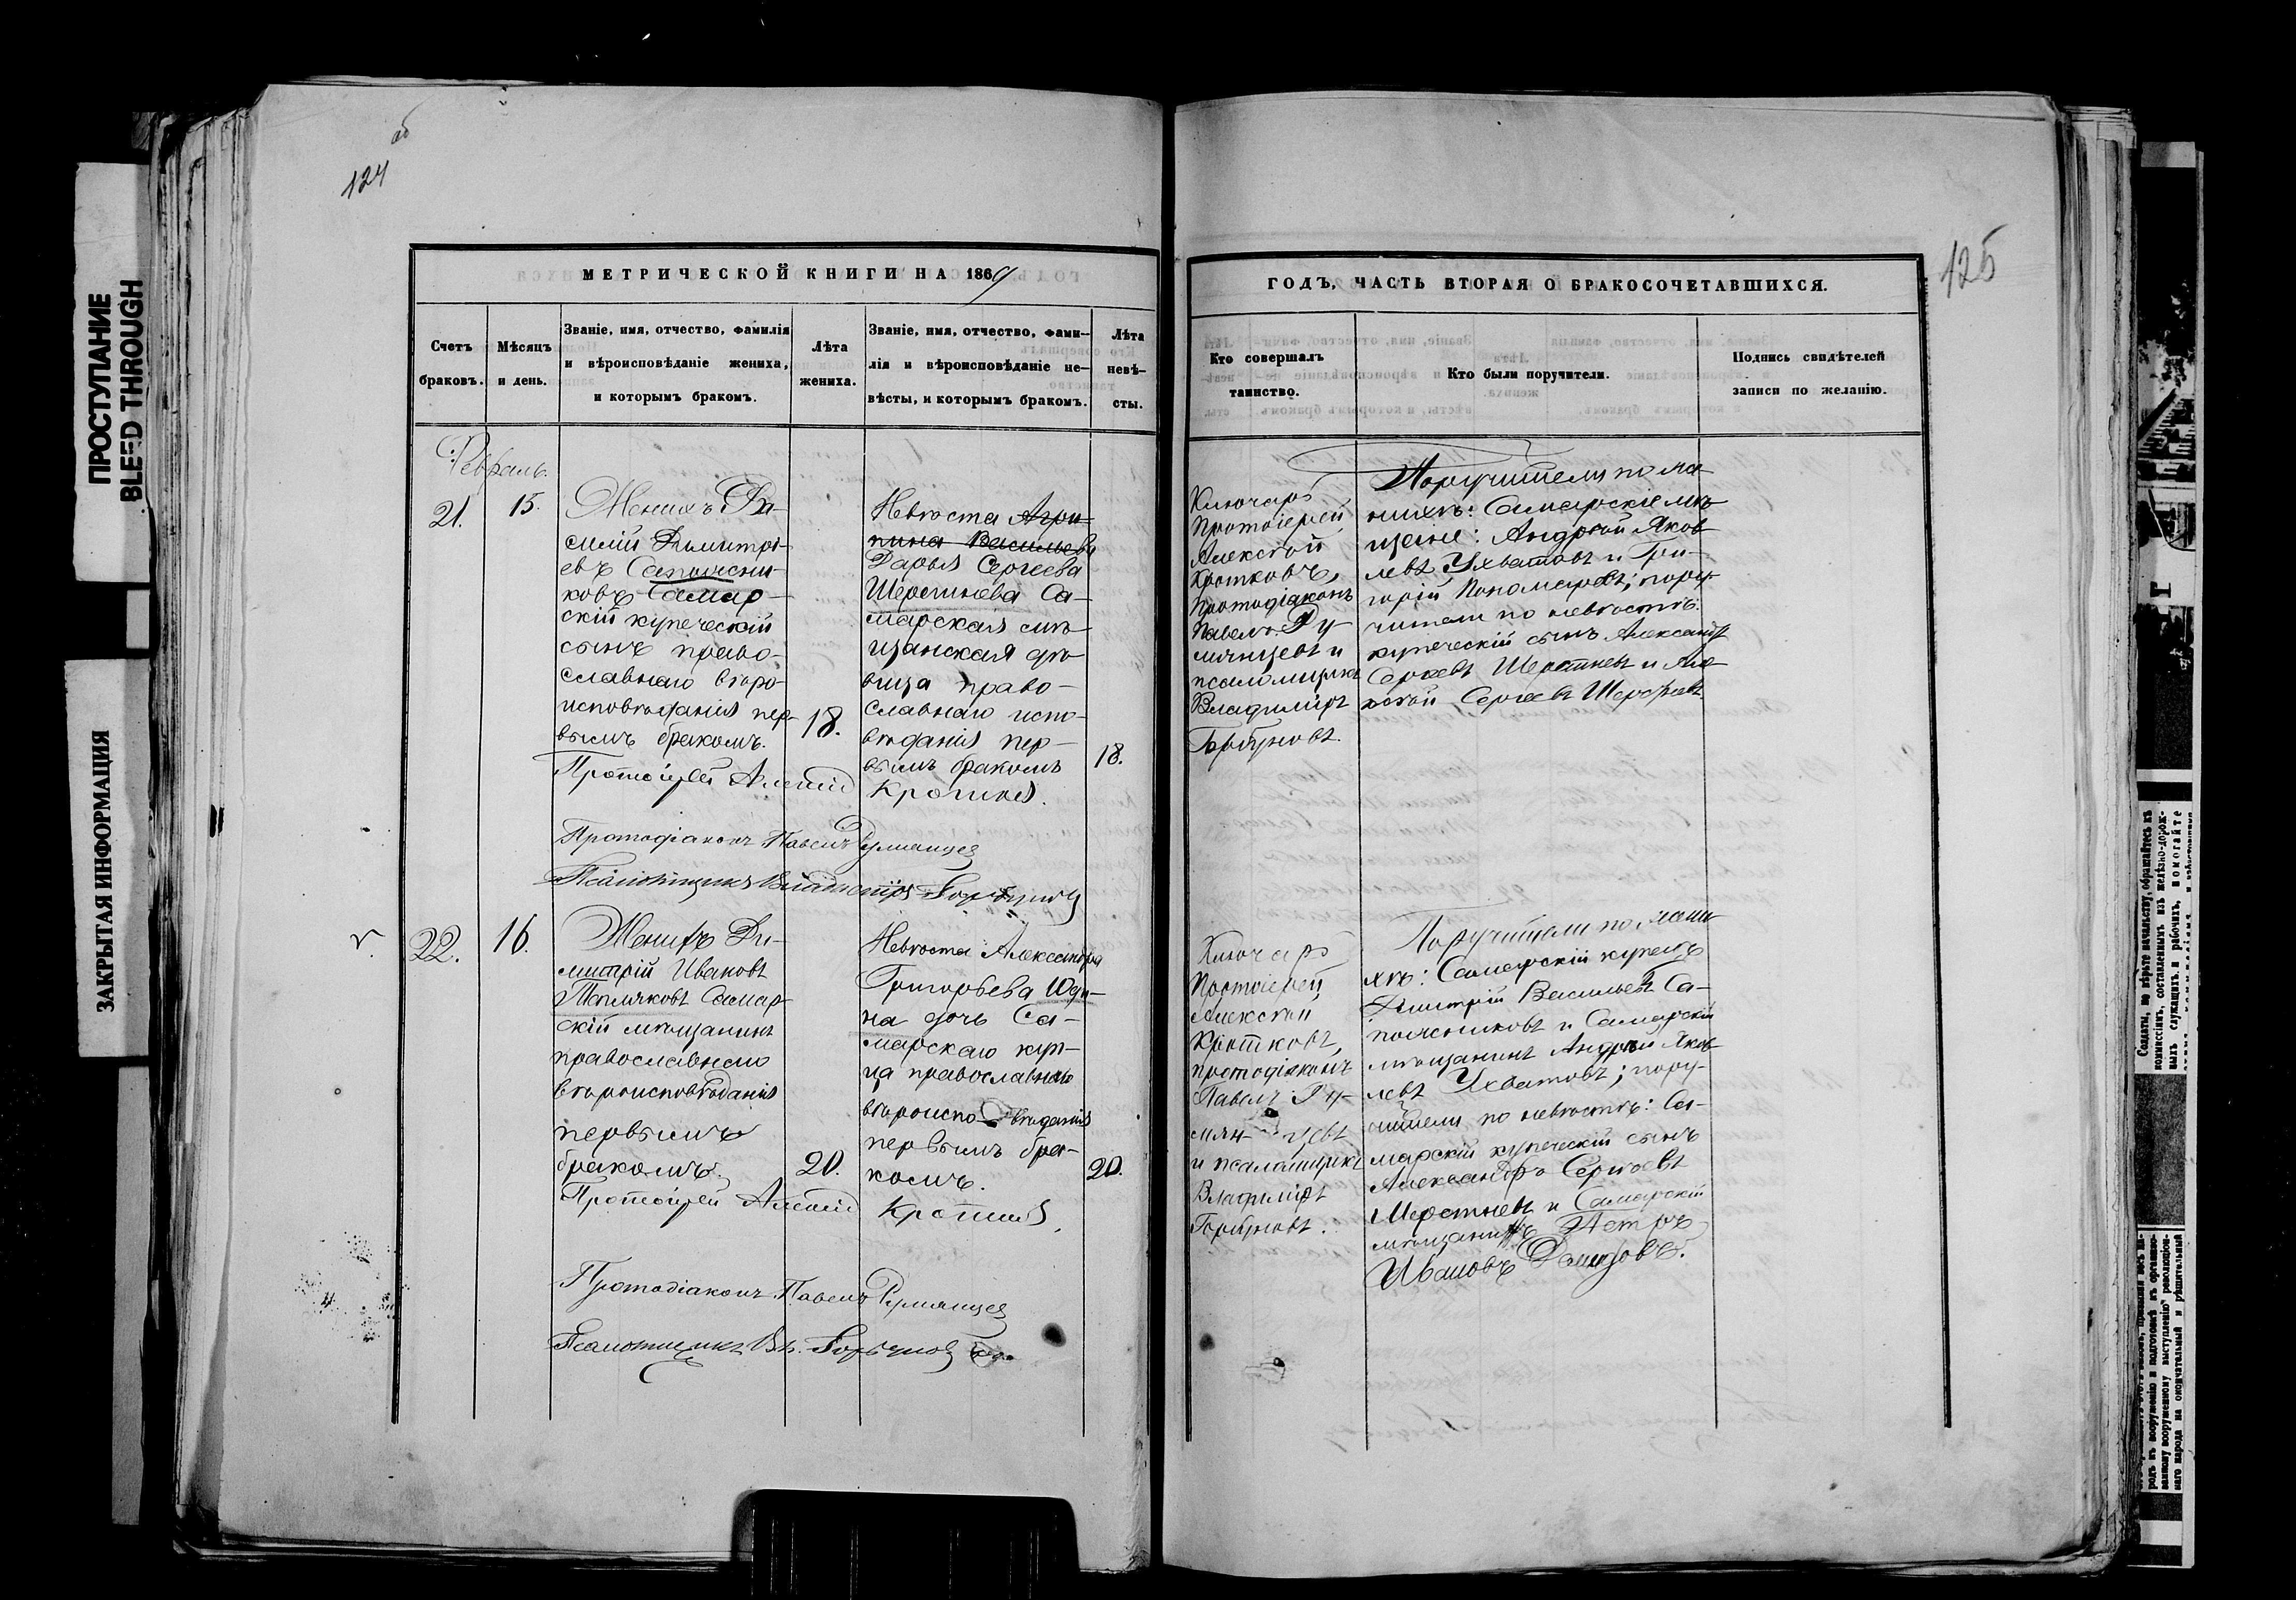 ПРОСТУПАНИЕ
BLEED THROUGH
ЗАКРЫТАЯ ИНФОРМАЦИЯ
124
об
МЕТРИЧЕСКОЙ КНИГИ НА 1869
Счетъ
браковъ.
Мѣсяцъ
и день.
Званіе, имя, отчество, фамилія
и вѣроисповѣданіе жениха,
и которымъ бракомъ.
Лѣта
жениха.
Званіе, имя, отчество, фами-
лія и вѣроисповѣданіе не-
вѣсты, и которымъ бракомъ.
Лѣта
невѣ-
сты.
Февраль.
21.
15.
Женихъ Ва-
силій Димитрі-
евъ Сапожни-
ковъ Самар-
скій купеческій
сынъ право-
славнаго вѣро-
исповѣданія пер-
вымъ бракомъ.
18.
Невѣста Агри-
пина Васильева
Дарья Сергеева
Шерстнева Са-
марская мѣ-
щанская дѣ-
вица право-
славнаго испо-
вѣданія пер-
вымъ бракомъ
18.
Протоіерей Алексій Кротковъ
Протодіаконъ Павелъ Румянцев
Псаломщикъ Владиміръ Горбунов
22.
16.
Женихъ Ди-
митрій Ивановъ
Тепляковъ Самар-
скій мѣщанинъ
православнаго
вѣроисповѣданія
первымъ
бракомъ.
20.
Невѣста Александра
Григорьева Юди-
на дочь Са-
марскаго куп-
ца православнаго
вѣроиспо-вѣданія
первымъ бра-
комъ.
20.
Протоіерей Алексій Кротковъ
Протодіаконъ Павелъ Румянцев
Псаломщикъ Вл. Горбунов
125
ГОДЪ, ЧАСТЬ ВТОРАЯ О БРАКОСОЧЕТАВШИХСЯ.
Кто совершалъ
таинство.
Кто были поручители.
Подпись свидѣтелей
записи по желанію.
Ключарь
Протоіерей
Алексѣй
Кротковъ,
Протодіаконъ
Павелъ Ру-
мянцевъ и
псаломщикъ
Владиміръ
Горбуновъ.
Поручители по же-
нихѣ: Самарскіе мѣ-
щане: Андрей Яков-
левъ Ухватовъ и Гри-
горій Пономаревъ; пору-
чители по невѣстѣ:
купеческій сынъ Александръ
Сергеевъ Шерстневъ и Але-
ксѣй Сергеевъ Шерстневъ.
Ключарь
Протоіерей
Алексѣй
Кротковъ,
протодіаконъ
Павелъ Ру-
мян-цевъ
и псаломщикъ
Владиміръ
Горбуновъ.
Поручители по жени-
хѣ: Самарскій купецъ
Дмитрій Васильевъ Са-
пожниковъ и Самарскій
мѣщанинъ Андрей Яков-
левъ Ухватовъ; пору-
чители по невѣстѣ: Са-
марскій купеческій сынъ
Александръ Сергѣевъ
Шерстневъ и Самарскій
мѣщанинъ Петръ
Ивановъ
Солдаты, не вѣрьте начальству, обращайтесь къ
комиссіямъ, составленнымъ изъ желѣзно-дорож-
ныхъ служащихъ и рабочихъ, помогайте